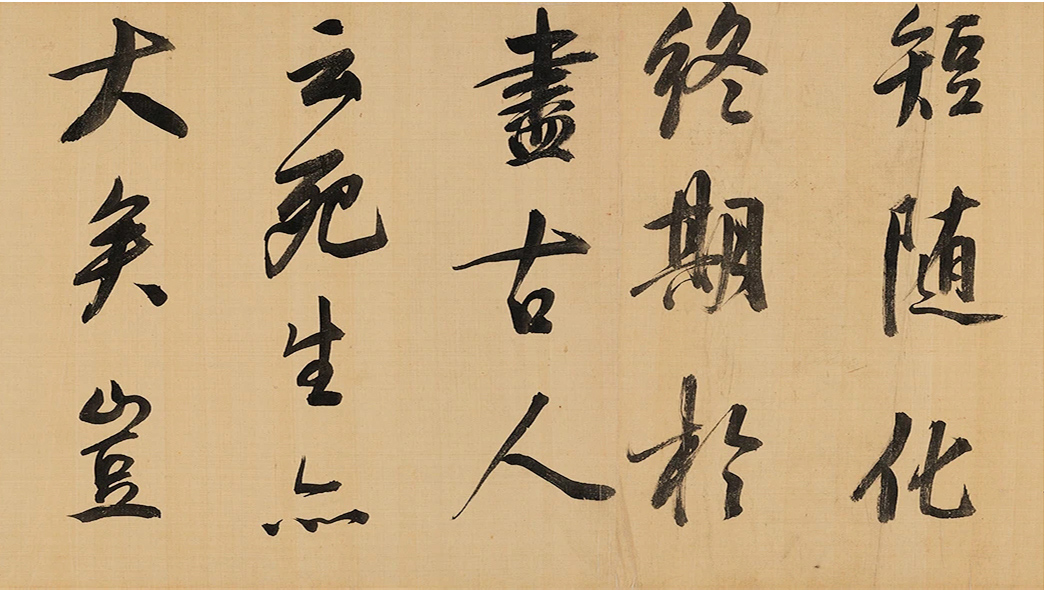 短随化
終期於
盡古人
云死生亦
大矣豈